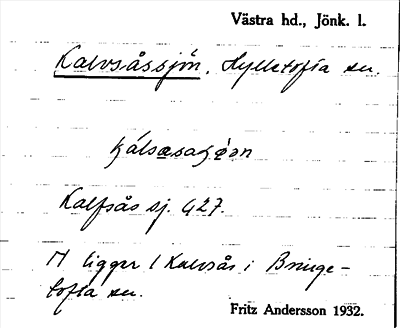 Västra hd., Jönk. l.
Kalvsåssjön, Hylletofta sn.
Kalfsås sj. G27.
ligger / Kalvsås i Bringe-
tofta sn.
Fritz Andersson 1932.